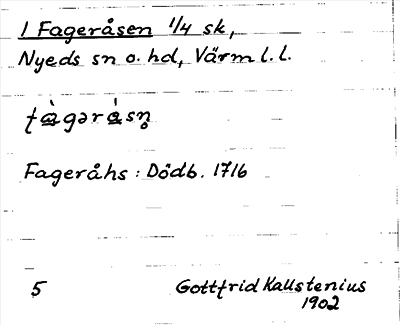 1 Fageråsen 1/4 sk,
Nyeds sn o. hd, Värm l. l.
Fageråhs : Dödb. 1716
5 Gottfrid Kallstenius
1902